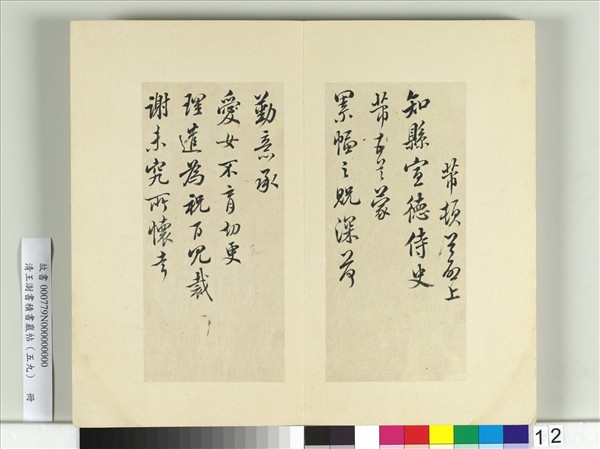 芾頓首再上
知縣宣德侍史
芾蒙
累幅之貺深荷
勤意承
愛女不育切更
理遣為祝百冗裁
謝未究所懷
故書 000779N000000000
清王澍書積書巖帖（五九） 冊
12